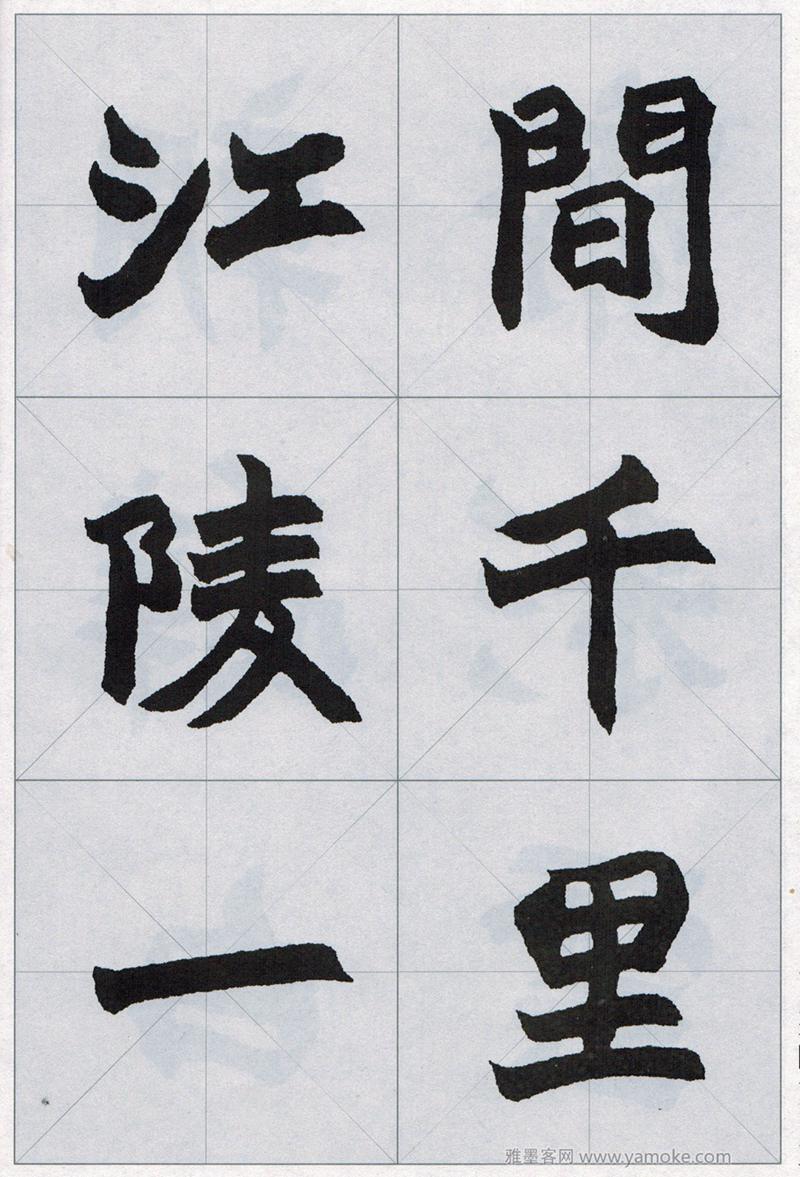 間千里
江陵一
雅墨客网 www.yamoke.com